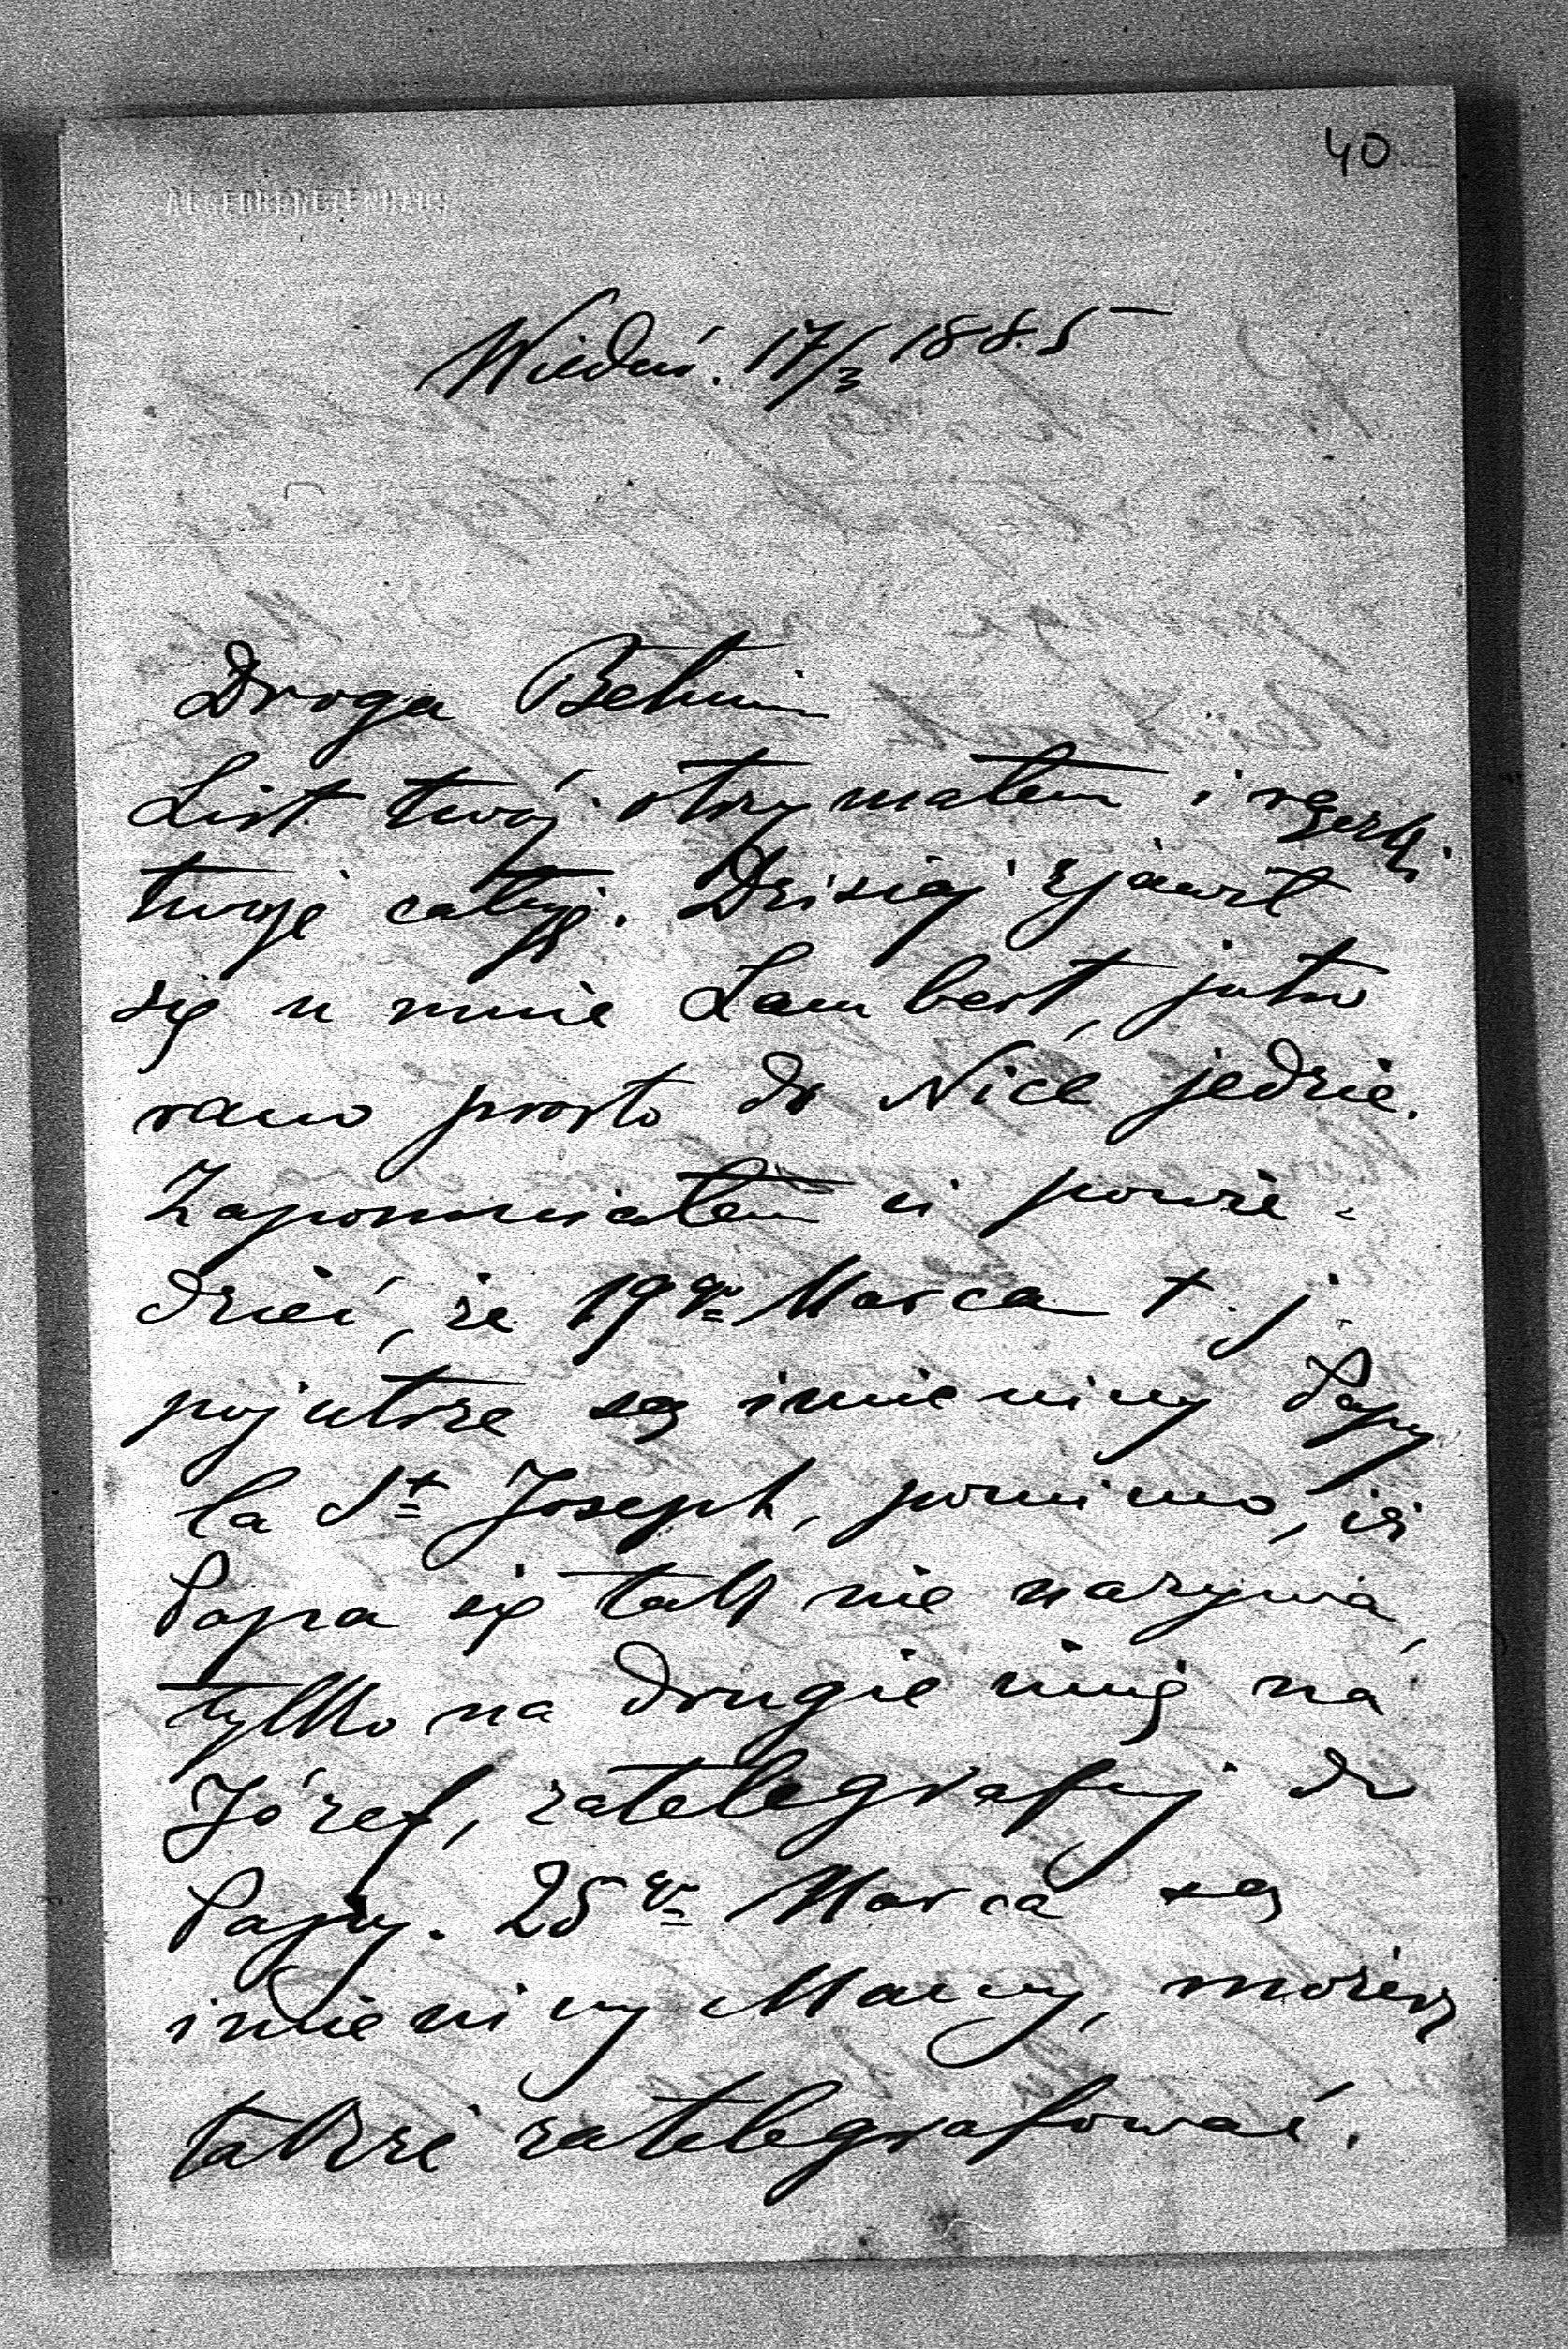 40
ABGEORDNETENHAUS
Wiedeń. 17/3 1885
Droga
List twój otrzymałem i rączki
twoje całuję. Dzisiaj zjawił
się u mnie Lambert, jutro
rano prosto do Nice jedzie.
Zapomniałem ci powie-
dzieć, że 19go Marca t. j.
pojutrze są imieniny Papy
la St Joseph, pomimo, iż
Papa się tak nie nazywa,
tylko na drugie imię na
Józef, zatelegrafuj do
Papy. 25go Marca są
imieniny Mamy, możesz
także zatelegrafować.